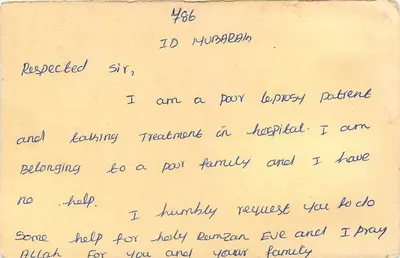 786
ID MUBARAK
Respected Sir,
I am a poor leprosy patient
and taking treatment in hospital. I am
Belonging to a poor family and I have
no help.
I humbly request you to do
Some help for holy Ramzan Eve and I pray
Allah for you and your family